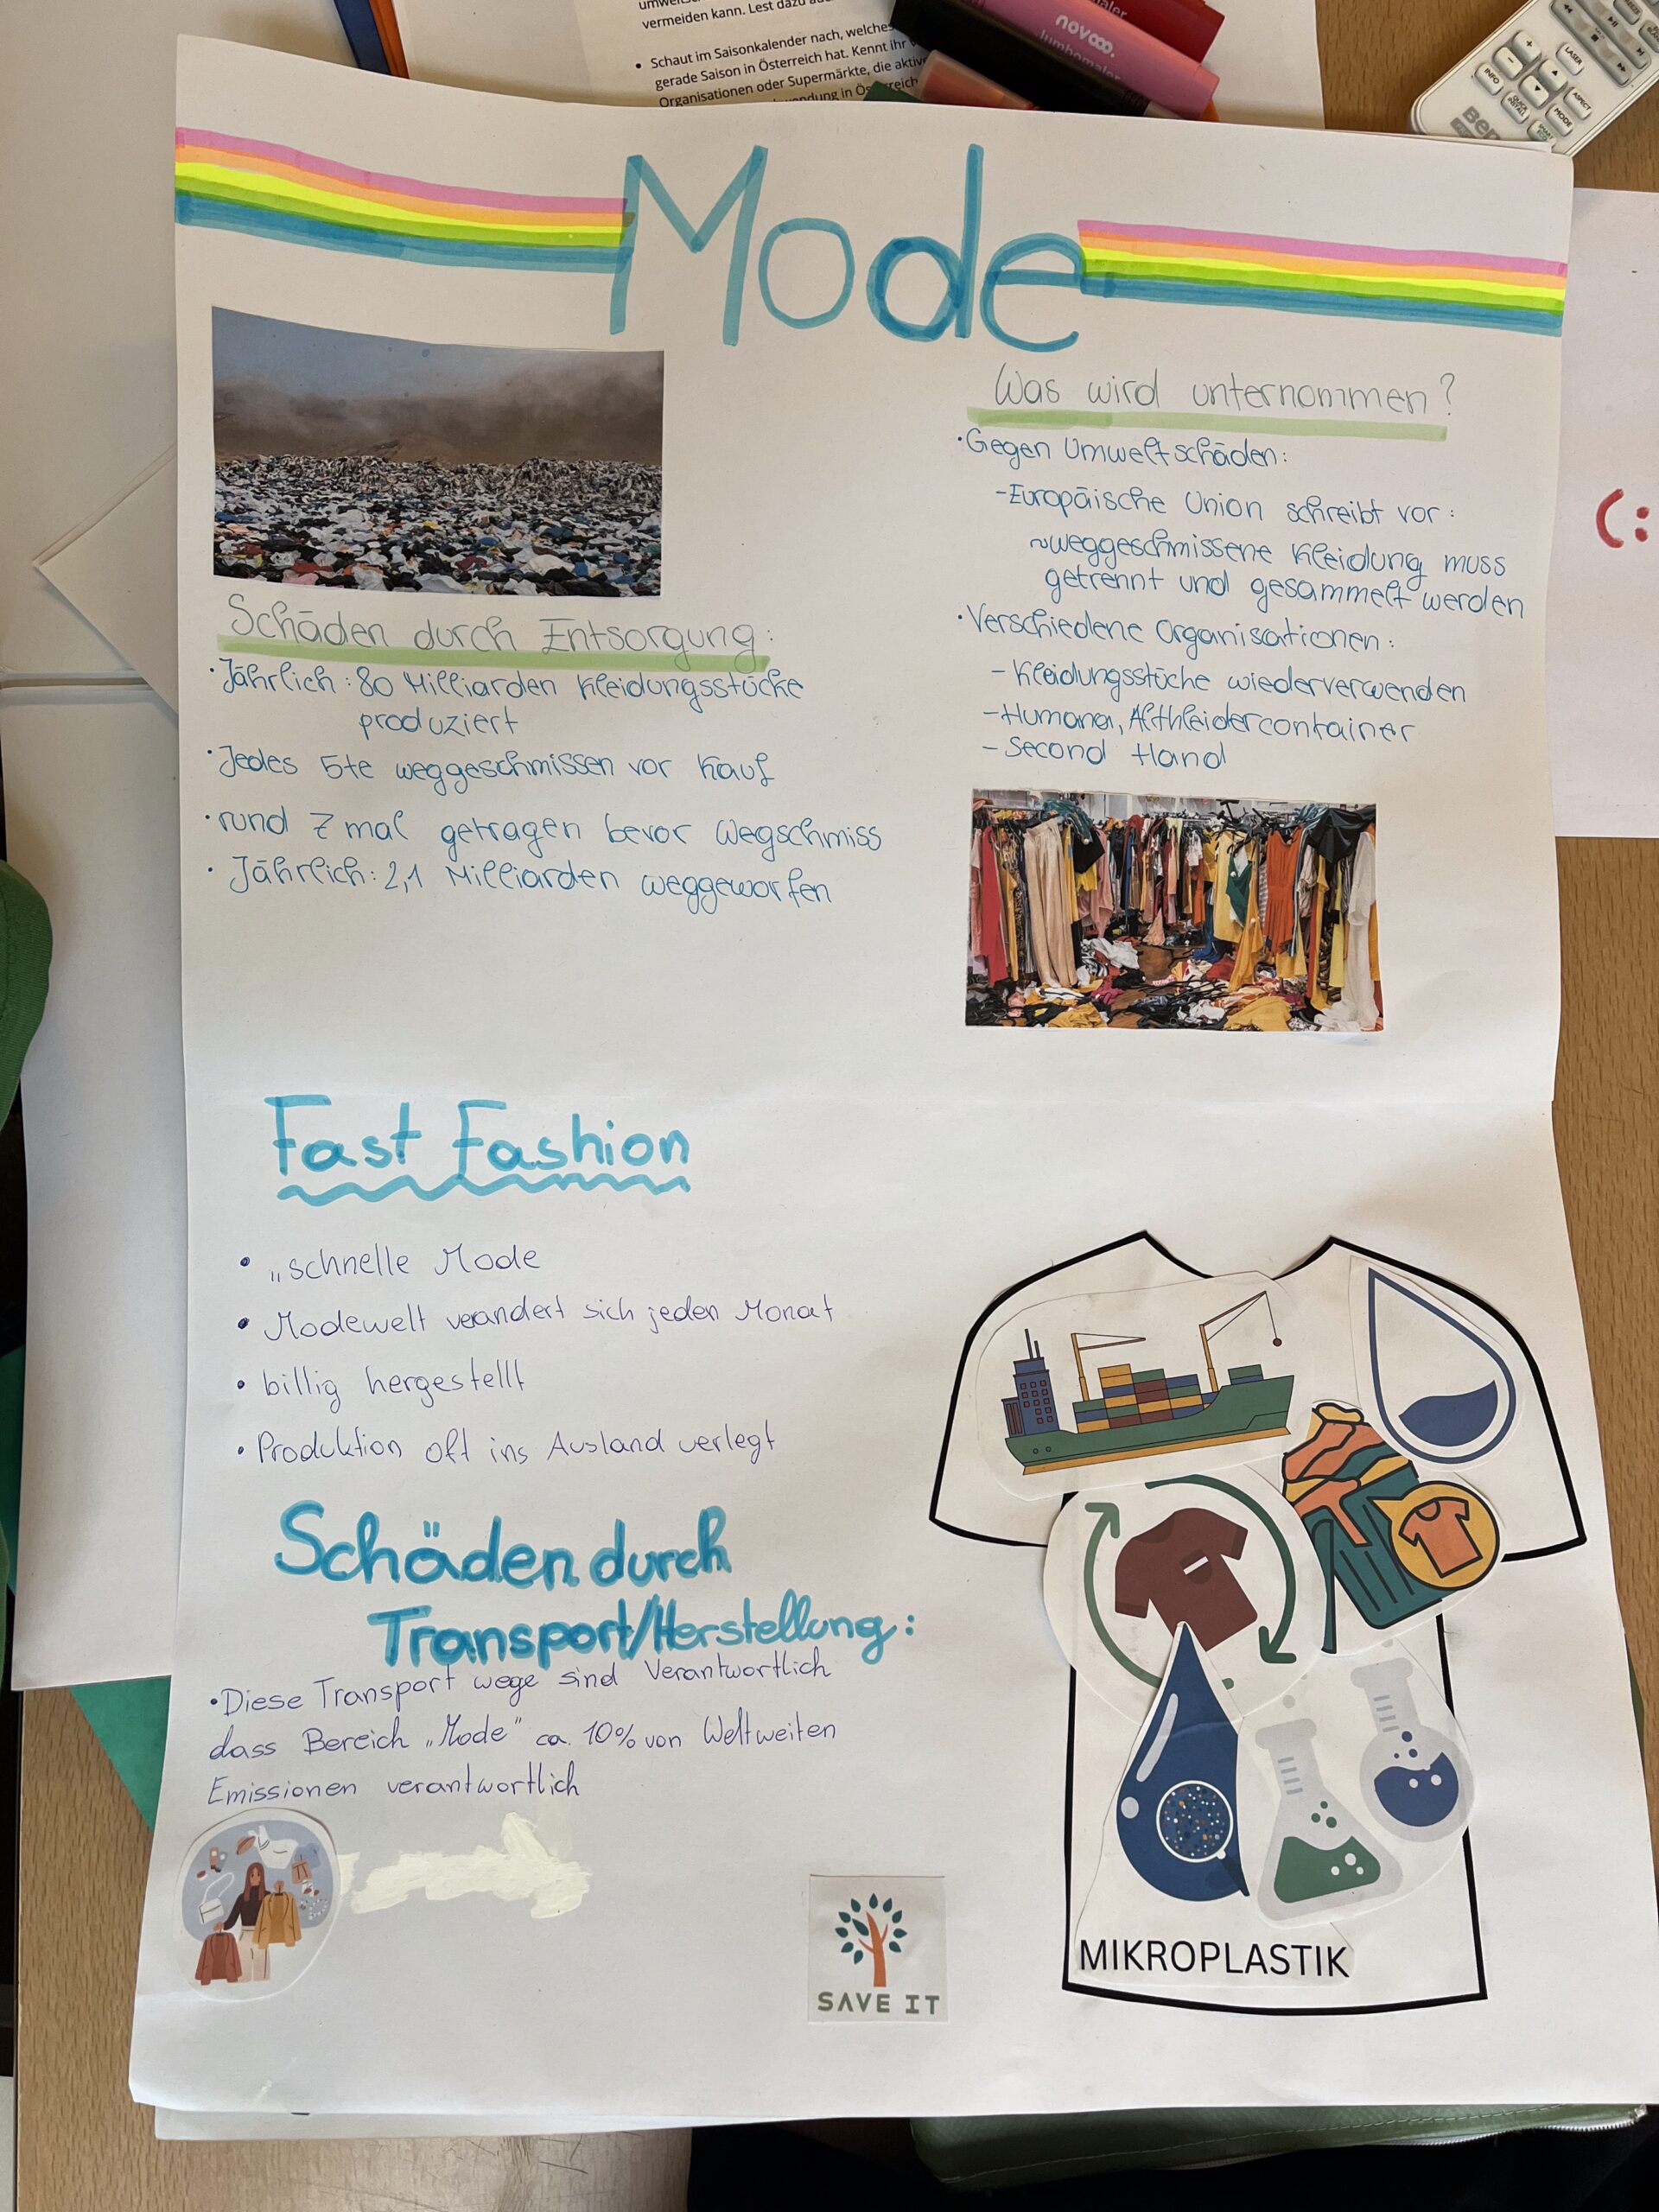 vermeiden kann. Lest dazu
• Schaut im Saisonkalender nach, welches
gerade Saison in Österreich hat. Kennt ihr
Organisationen oder Supermärkte, die aktiv
novooo.
Jumbomaler
LASER
INFO
ASPECT
MODE
Mode
Schäden durch Entsorgung:
• Jährlich: 80 Milliarden Kleidungsstücke
produziert
• Jedes 5te weggeschmissen vor Kauf
• rund 7 mal getragen bevor Wegschmiss
• Jährlich: 2,1 Milliarden weggeworfen
Was wird unternommen?
• Gegen Umweltschäden:
- Europäische Union schreibt vor:
~weggeschmissene Kleidung muss
getrennt und gesammelt werden
• Verschiedene Organisationen:
- Kleidungsstücke wiederverwenden
- Humana, Altkleidercontainer
- Second Hand
(:
Fast Fashion
• „schnelle Mode
• Modewelt verändert sich jeden Monat
• billig hergestellt
• Produktion oft ins Ausland verlegt
Schäden durch
Transport/Herstellung:
• Diese Transport wege sind Verantwortlich
dass Bereich „Mode" ca. 10% von Weltweiten
Emissionen verantwortlich
SAVE IT
MIKROPLASTIK